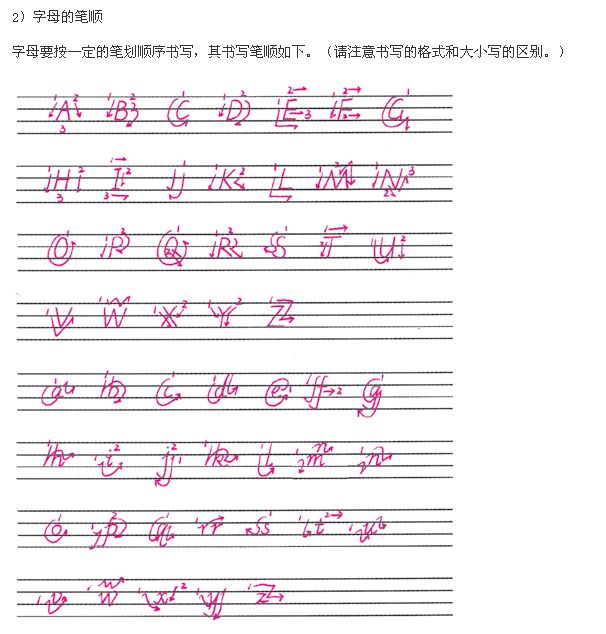 2）字母的笔顺
字母要按一定的笔划顺序书写，其书写笔顺如下。（请注意书写的格式和大小写的区别。）
A B C D E F G
H I J K L M N
O P Q R S T U
V W X Y Z
a b c d e f g
h i j k l m n
o p q r s t u
v w x y z